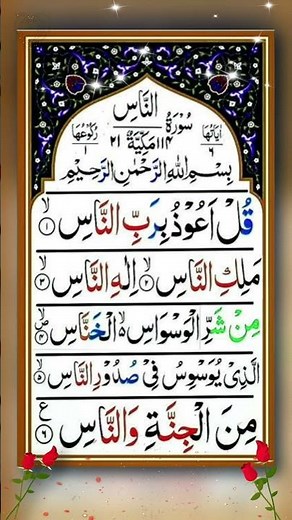 النَّاسِ
اٰيَاتُهَا ٦ سُوْرَةُ ١١٤ مَكِّيَّةٌ ٢١ رُكُوْعُهَا ١
بِسْمِ اللهِ الرَّحْمٰنِ الرَّحِيْمِ
قُلْ اَعُوْذُ بِرَبِّ النَّاسِ ۙ‏ ١
مَلِكِ النَّاسِ ۙ‏ ٢ اِلٰهِ النَّاسِ ۙ‏ ٣
مِنْ شَرِّ الْوَسْوَاسِ ۙ الْخَنَّاسِ ۪ۙ‏ ٤
الَّذِىْ يُوَسْوِسُ فِىْ صُدُوْرِ النَّاسِ ۙ‏ ٥
مِنَ الْجِنَّةِ وَالنَّاسِ ع ٦